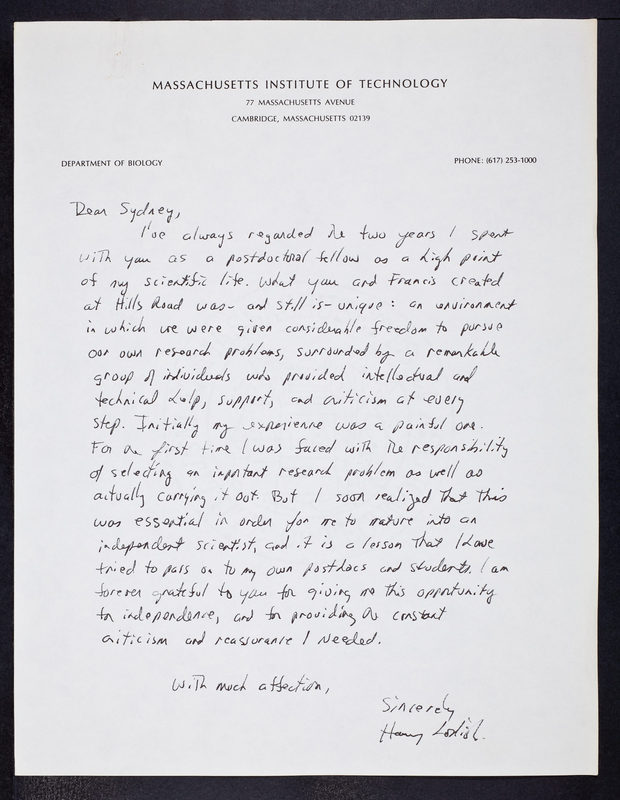 MASSACHUSETTS INSTITUTE OF TECHNOLOGY
77 MASSACHUSETTS AVENUE
CAMBRIDGE, MASSACHUSETTS 02139
DEPARTMENT OF BIOLOGY
PHONE: (617) 253-1000
Dear Sydney,
I've always regarded the two years I spent
with you as a postdoctoral fellow as a high point
of my scientific life. What you and Francis created
at Hills Road was - and still is - unique: an environment
in which we were given considerable freedom to pursue
our own research problems, surrounded by a remarkable
group of individuals who provided intellectual and
technical help, support, and criticism at every
step. Initially my experience was a painful one.
For the first time I was faced with the responsibility
of selecting an important research problem as well as
actually carrying it out. But I soon realized that this
was essential in order for me to mature into an
independent scientist, and it is a lesson that I have
tried to pass on to my own postdocs and students. I am
forever grateful to you for giving me this opportunity
for independence, and for providing the constant
criticism and reassurance I needed.
With much affection,
Sincerely
Harvey Lodish.